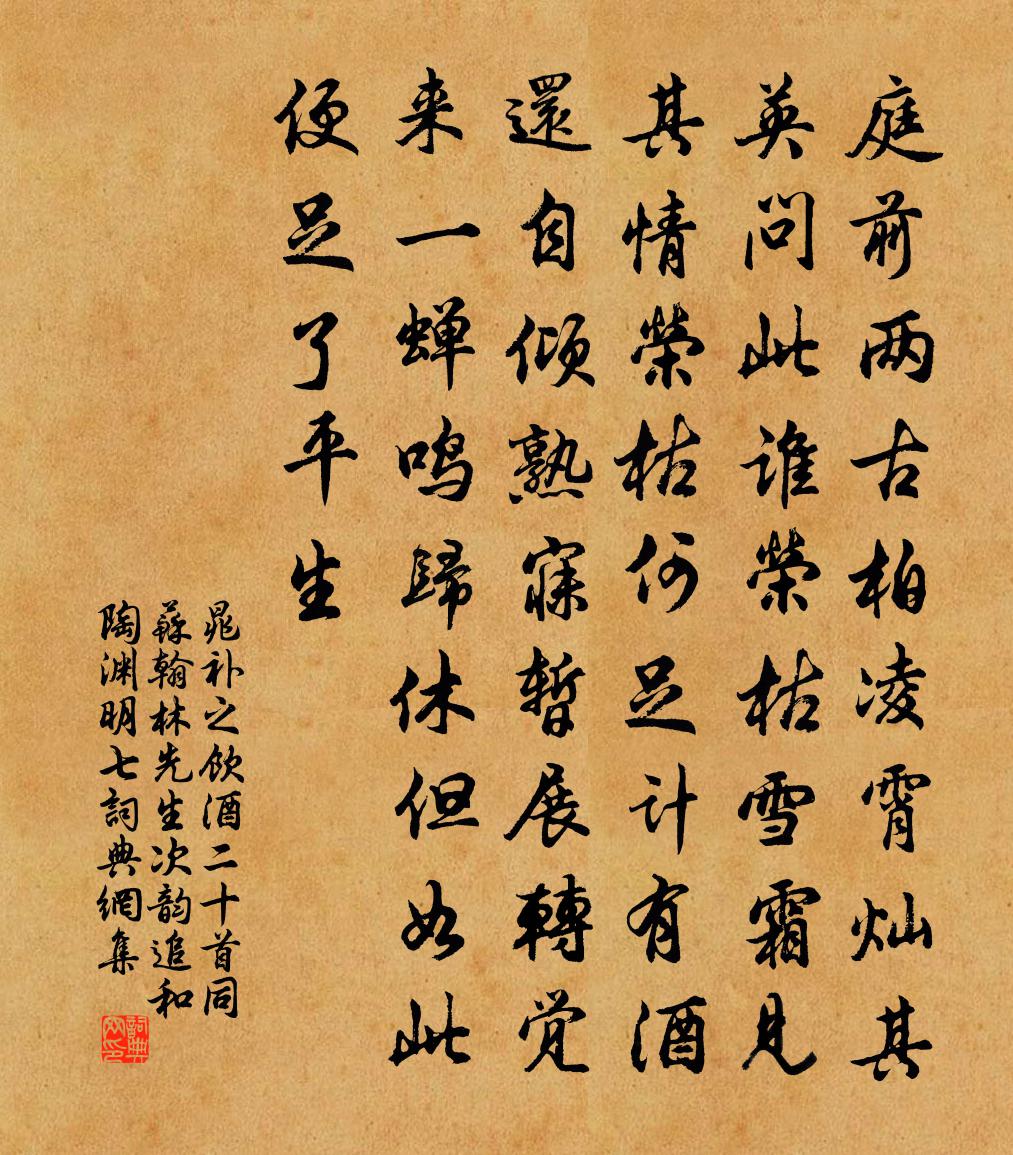 庭前两古柏凌霄灿其
英问此谁榮枯雪霜见
其情榮枯何足计有酒
還自倾熟寐暂展轉觉
来一蝉鸣歸休但如此
便足了平生
晁补之饮酒二十首同
蘇翰林先生次韵追和
陶渊明七詞典網集
詞典網印